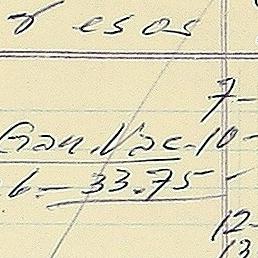 y esos
7-
Gran. Vac. 10-
6- 33.75-
12-
13